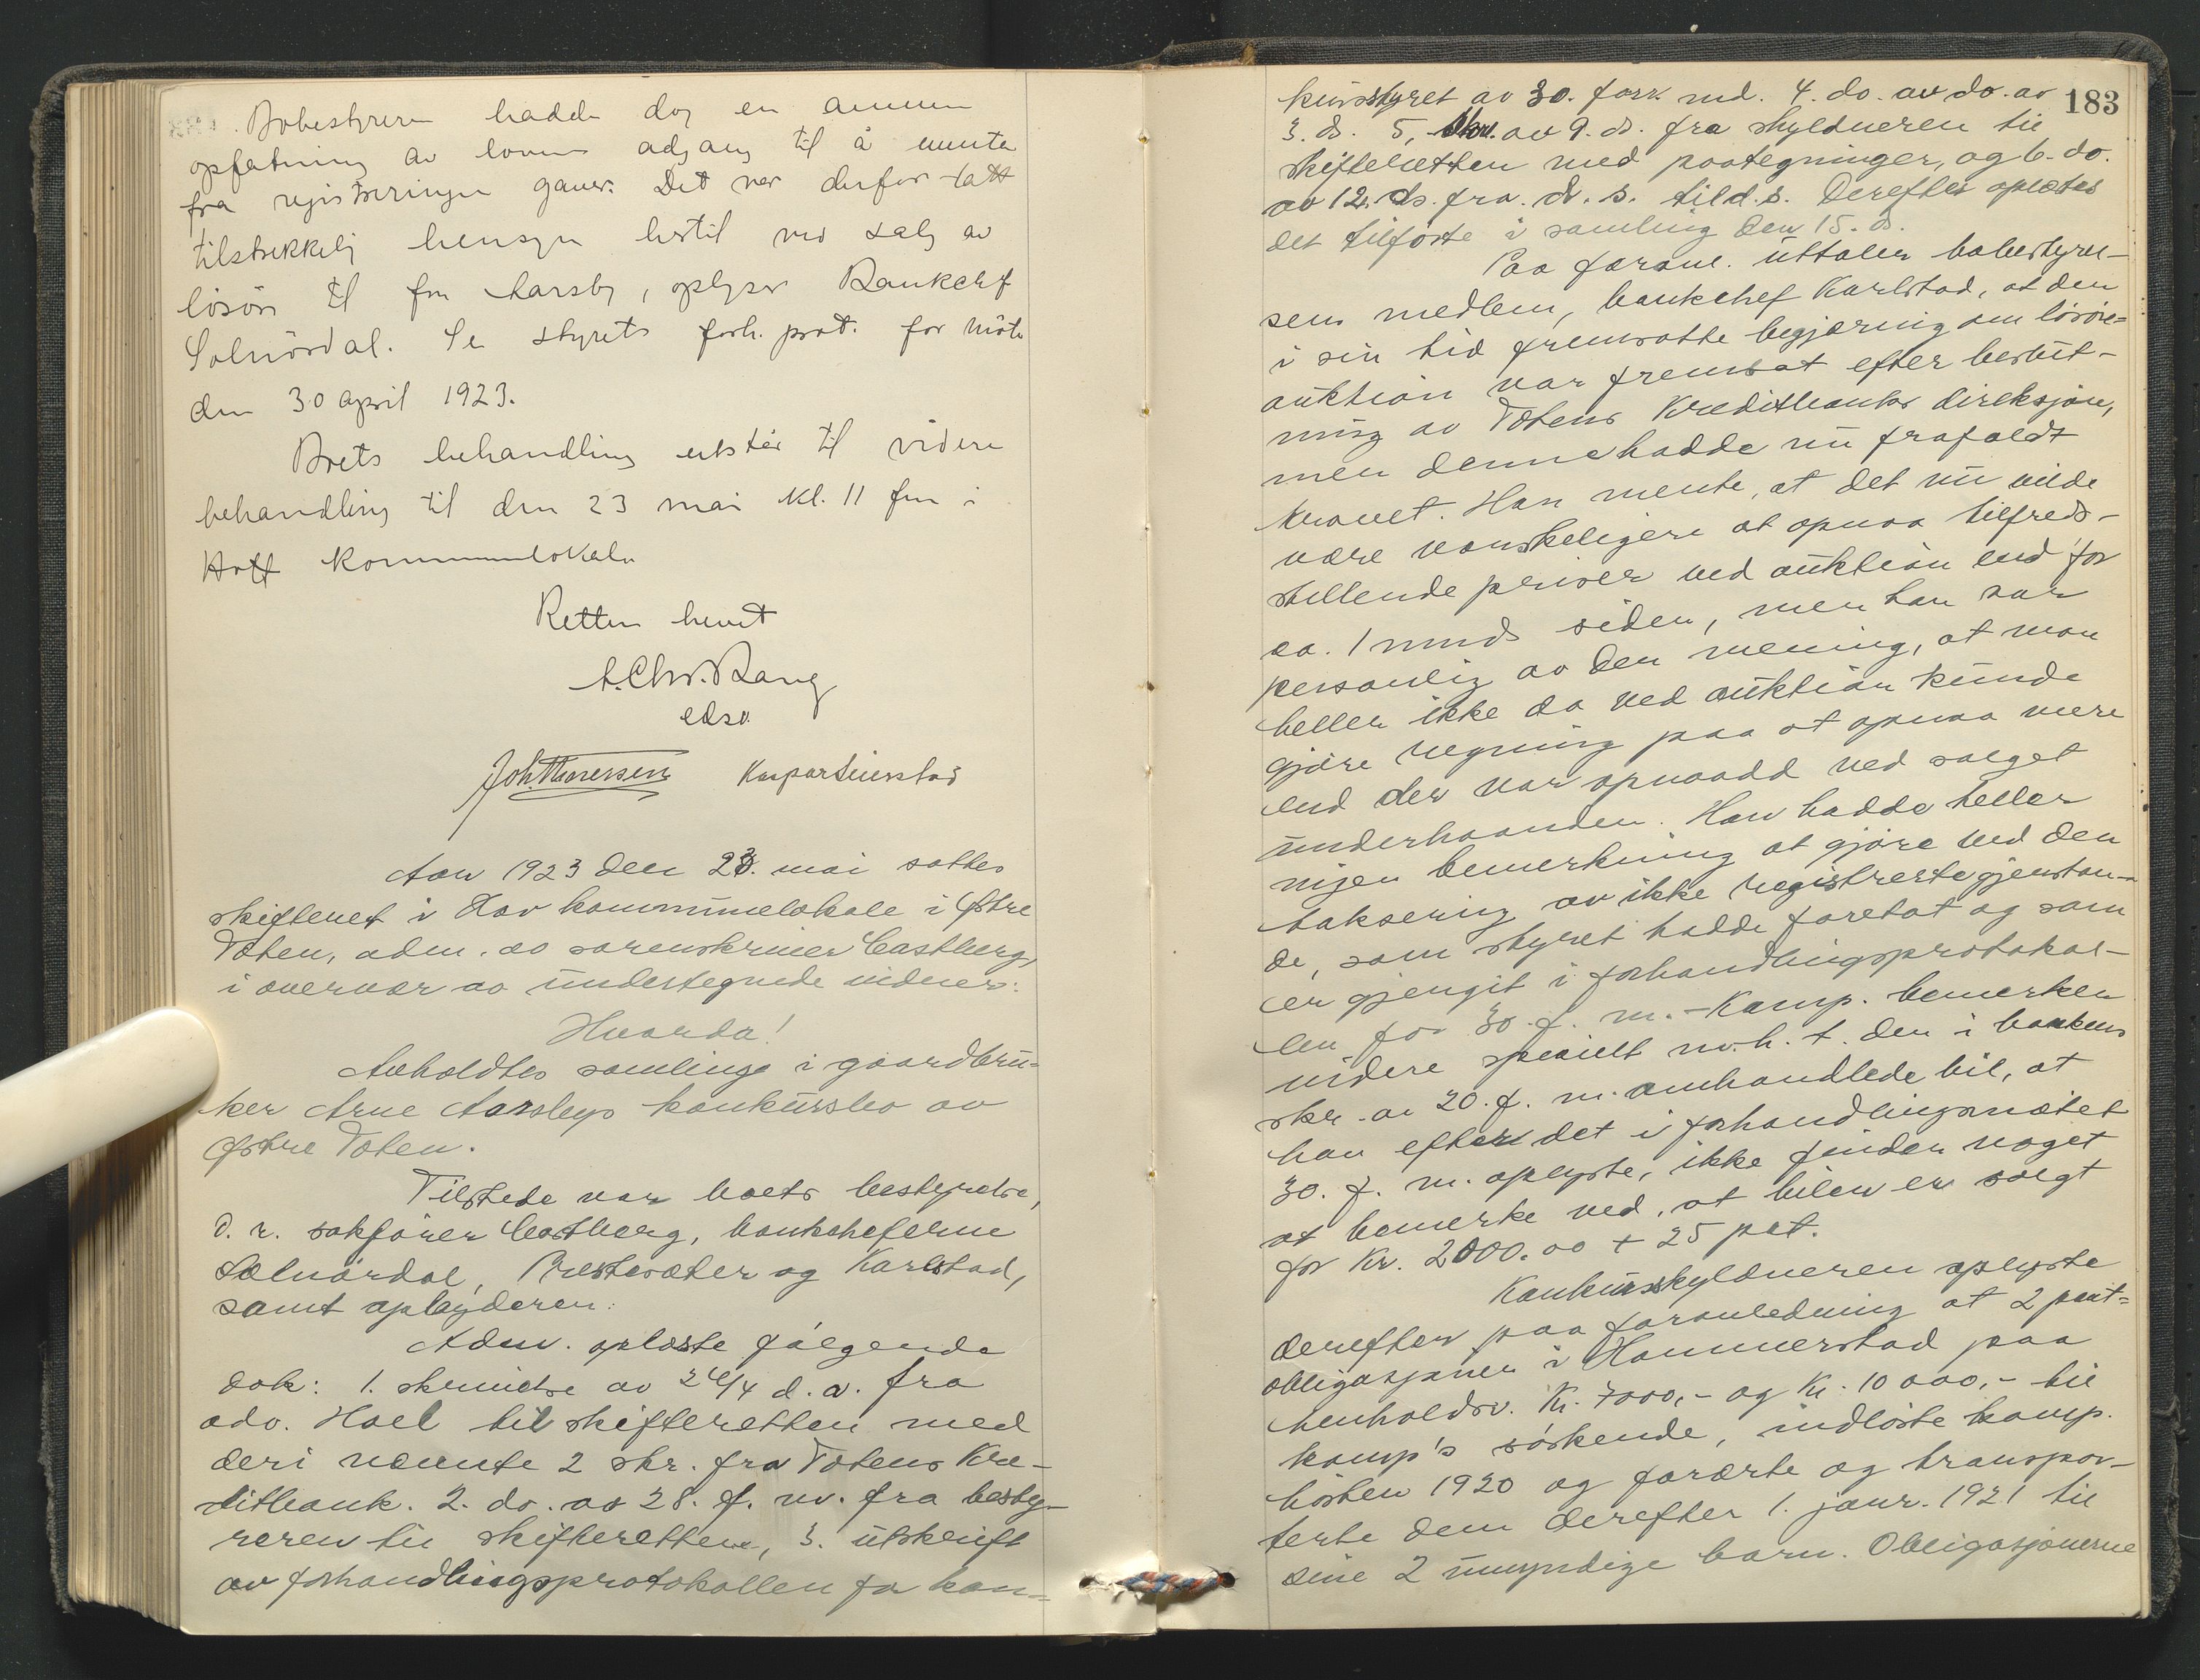 Bobestyreren hadde dog en annen
opfatning av lovens adgang til å unnta
fra registreringen gaver. Det var derfor tatt
tilstrekkelig hensyn hertil ved salg av
løsøre til fru Aarsby, oplyser Bankchef
Solnørdal. Se styrets forh. prot. for møte
den 30 april 1923.
Boets behandling utstår til videre
behandling til den 23 mai kl. 11 fm i
Hoff kommunelokale
Retten hevet
A. Chr. Bang
edsv.
Joh. Thoresen Kaspar Seierstad
Aar 1923 den 23. mai sattes
skifteret i Hov kommunelokale i Østre
Toten, adm. av sorenskriver Castberg,
i overvær av undertegnede vidner:
Hvorda!
Avholdtes samling i gaardbru-
ker Arne Aarsbys konkursbo av
Østre Toten.
Tilstede var boets bestyrelse,
d. v. sakfører Castberg, bankcheferne
Solnørdal, Prestesæter og Karlstad,
samt opbyderen:
Adm. oplæste følgende
dok: 1. skrivelse av 26/4 d. a. fra
adv. Hoel til skifteretten med
deri nævnte 2 skr. fra Totens Kre-
ditbank. 2. do. av 28. f. m. fra besty-
reren til skifteretten, 3. utskrift
av forhandlingsprotokollen for kon-
183
kursstyret av 30. forr. md. 4. do. av do. av
3. ds. 5, skr. av 9. ds. fra skyldneren til
skifteretten med paategninger, og 6. do.
av 12. ds. fra d. s. til d. s. Derefter oplæstes
det tilførte i samling den 15. ds.
Paa foranl. uttaler bobestyrel-
sens medlem, bankchef Karlstad, at den
i sin tid fremsatte begjæring om løsøre-
auktion var fremsat efter beslut-
ning av Totens Kreditbanks direksjon,
men denne hadde nu frafaldt
kravet. Han mente, at det nu vilde
være vanskeligere at opnaa tilfreds-
stillende priser ved auktion end for
ca. 1 mnd siden, men han var
personlig av den mening, at man
heller ikke da ved auktion kunde
gjøre regning paa at opnaa mere
end der var opnaadd ved salget
underhaanden. Han hadde heller
ingen bemerkning at gjøre ved den
taksering av ikke registrerte gjenstan-
de, som styret hadde foretat og som
er gjengit i forhandlingsprotokol-
len for 30. f. m. - Komp. bemerker
videre specielt m. h. t. den i bankens
skr. av 20. f. m. omhandlede bil, at
han efter det i forhandlingsmøtet
30. f. m. oplyste, ikke finder noget
at bemerke ved, at bilen er solgt
for Kr. 2000.00 + 25 pct.
Konkursskyldneren oplyste
derefter paa foranledning at 2 pant-
obligasjoner i Hammerstad paa
henholdsv. Kr. 7000,- og Kr. 10 000,- til
komp's søskende, indløste komp.
høsten 1920 og forærte og transpor-
terte dem derefter 1. janr. 1921 til
sine 2 umyndige barn. Obligasjonerne